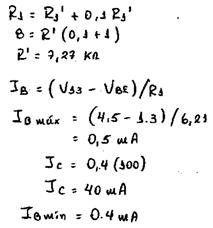 R1 = R1' + 0,1 R1'
8 = R' (0,1 + 1)
R' = 7,27 KΩ
IB = (V33 - VBE) / R1
IB máx = (4,5 - 1.3) / 6,21
= 0,5 mA
Ic = 0,4 (100)
Ic = 40 mA
IBmín = 0.4 mA